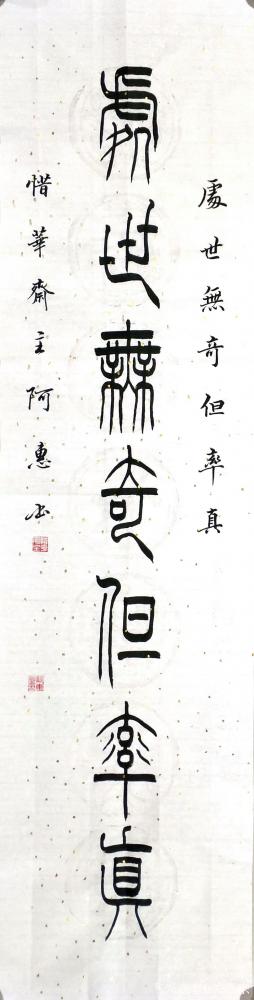 處世無奇但率真
處世無奇但率真
惜華齋主阿惠书